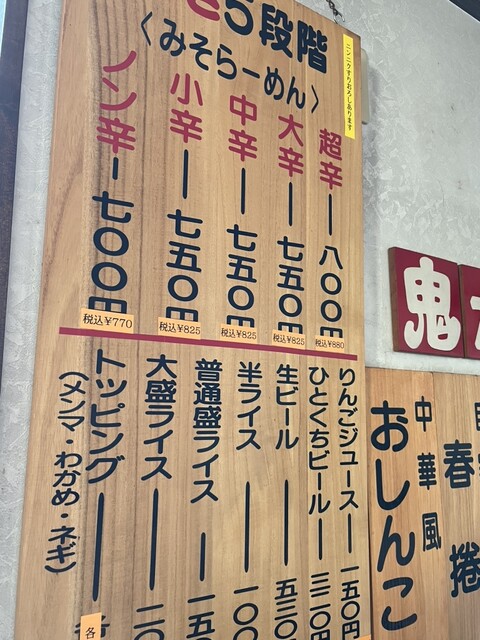 5段階
〈みそらーめん〉
ニンニクすりおろしあります
超辛ー八〇〇円
税込¥880
大辛ー七五〇円
税込¥825
中辛ー七五〇円
税込¥825
小辛ー七五〇円
税込¥825
ノン辛ー七〇〇円
税込¥770
りんごジュースー一五〇円
ひとくちビールー三二〇円
生ビールー五三〇
半ライスー一〇〇
普通盛ライスー一五〇
大盛ライスー二〇
トッピングー各
(メンマ・わかめ・ネギ)
鬼
春捲
中華風
おしんこ